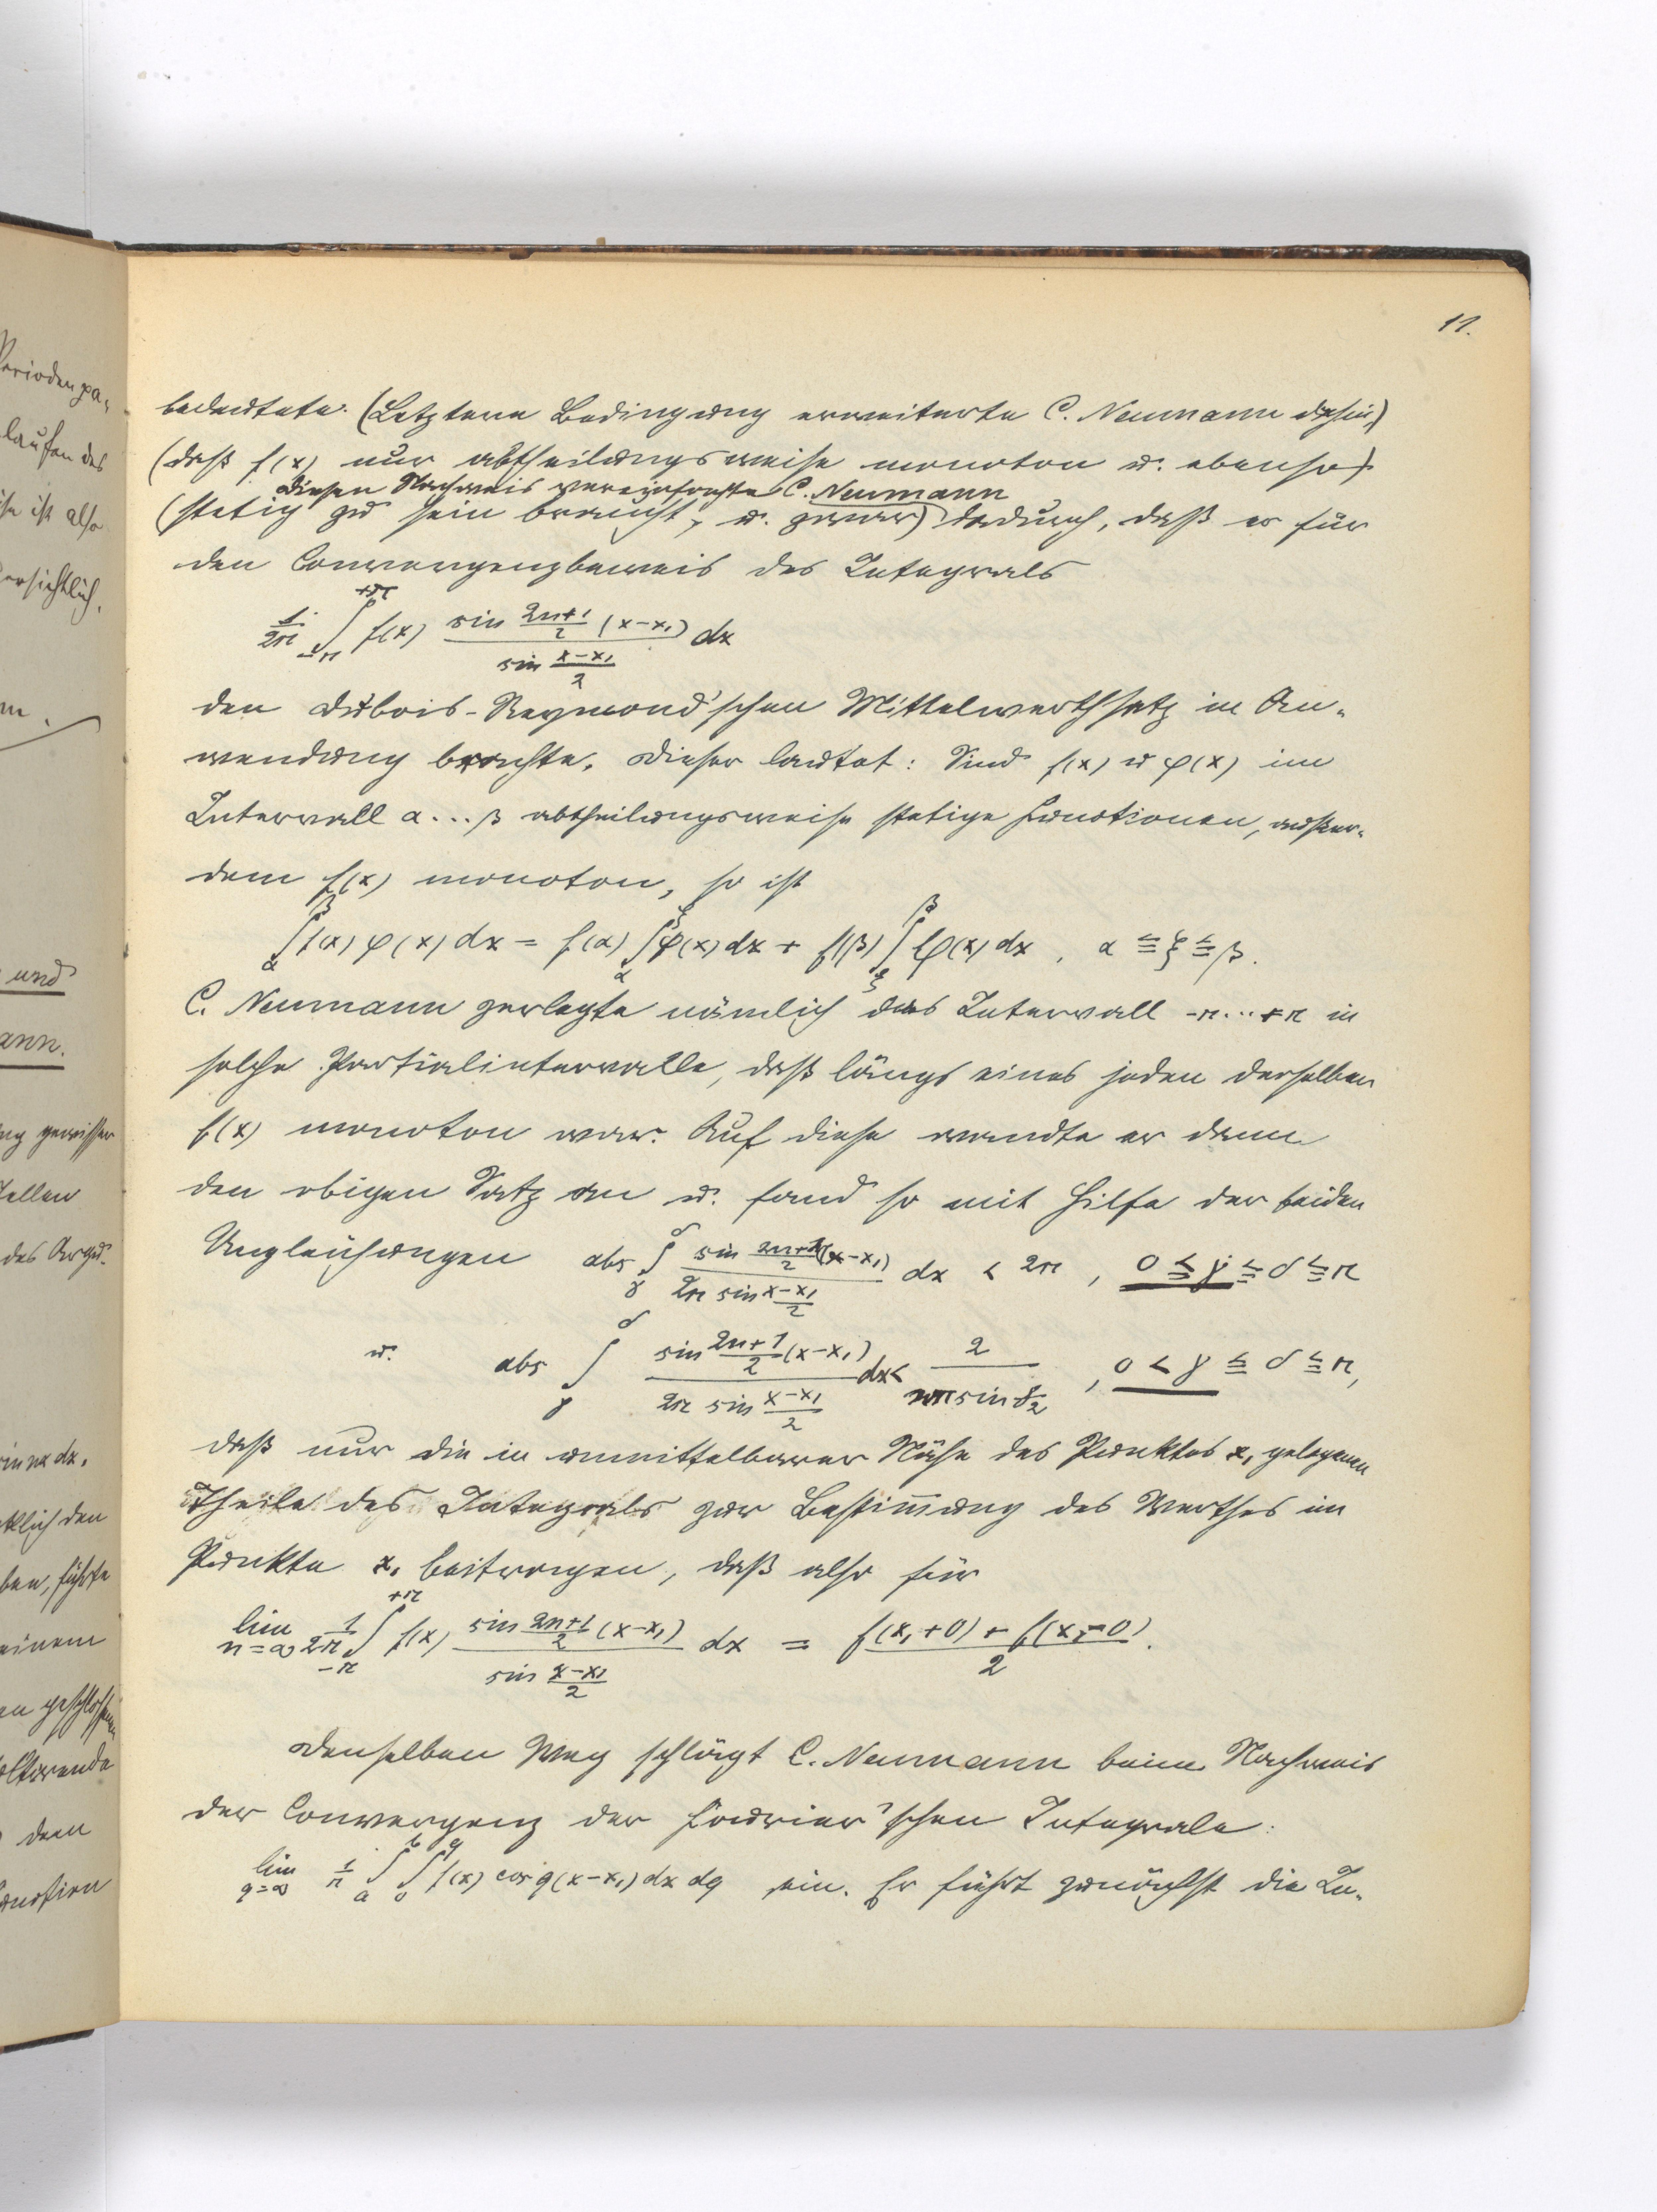 11.
bedeutete. (Letztere Bedingung erweiterte C. Neumann dahin,)
(daß f(x) nur abtheilungsweise monoton u. ebenso)
Diesen Nachweis vereinfachte C. Neumann
(stetig zu sein braucht, u. zwar) dadurch, daß er für
den Convergenzbeweis des Integrals
1/2π ∫_{-π}^{+π} f(x) (sin (2n+1)/2 (x-x₁))/(sin (x-x₁)/2) dx
den Dubois-Reymond'schen Mittelwerthsatz in An-
wendung brachte. Dieser lautet: Sind f(x) u φ(x) im
Intervall α...β abtheilungsweise stetige Functionen, außer-
dem f(x) monoton, so ist
∫_α^β f(x) φ(x) dx = f(α) ∫_α^ξ φ(x) dx + f(β) ∫_ξ^β φ(x) dx , α ≦ ξ ≦ β.
C. Neumann zerlegte nämlich das Intervall -π...+π in
solche Partialintervalle, daß längs eines jeden derselben
f(x) monoton war. Auf diese wandte er dann
den obigen Satz an u. fand so mit Hilfe der beiden
Ungleichungen abs ∫_γ^δ (sin (2n+1)/2 (x-x₁))/(2π sin (x-x₁)/2) dx < 2π , 0 ≦ γ ≦ δ ≦ π
u. abs ∫_γ^δ (sin (2n+1)/2 (x-x₁))/(2π sin (x-x₁)/2) dx < 2/(nπ sin γ/2) , 0 < γ ≦ δ ≦ π,
daß nur die in unmittelbarer Nähe des Punktes x₁ gelegenen
Theile des Integrals zur Bestim̄ung des Werthes im
Punkte x₁ beitragen, daß also für
lim n=∞ 1/2π ∫_{-π}^{+π} f(x) (sin (2n+1)/2 (x-x₁))/(sin (x-x₁)/2) dx = (f(x₁+0) + f(x₁-0))/2.
Denselben Weg schlägt C. Neumann beim Nachweis
der Convergenz der Fourier'schen Integrale:
lim q=∞ 1/π ∫_a^b ∫_0^q f(x) cos q(x-x₁) dx dq ein. Er führt zunächst die In-